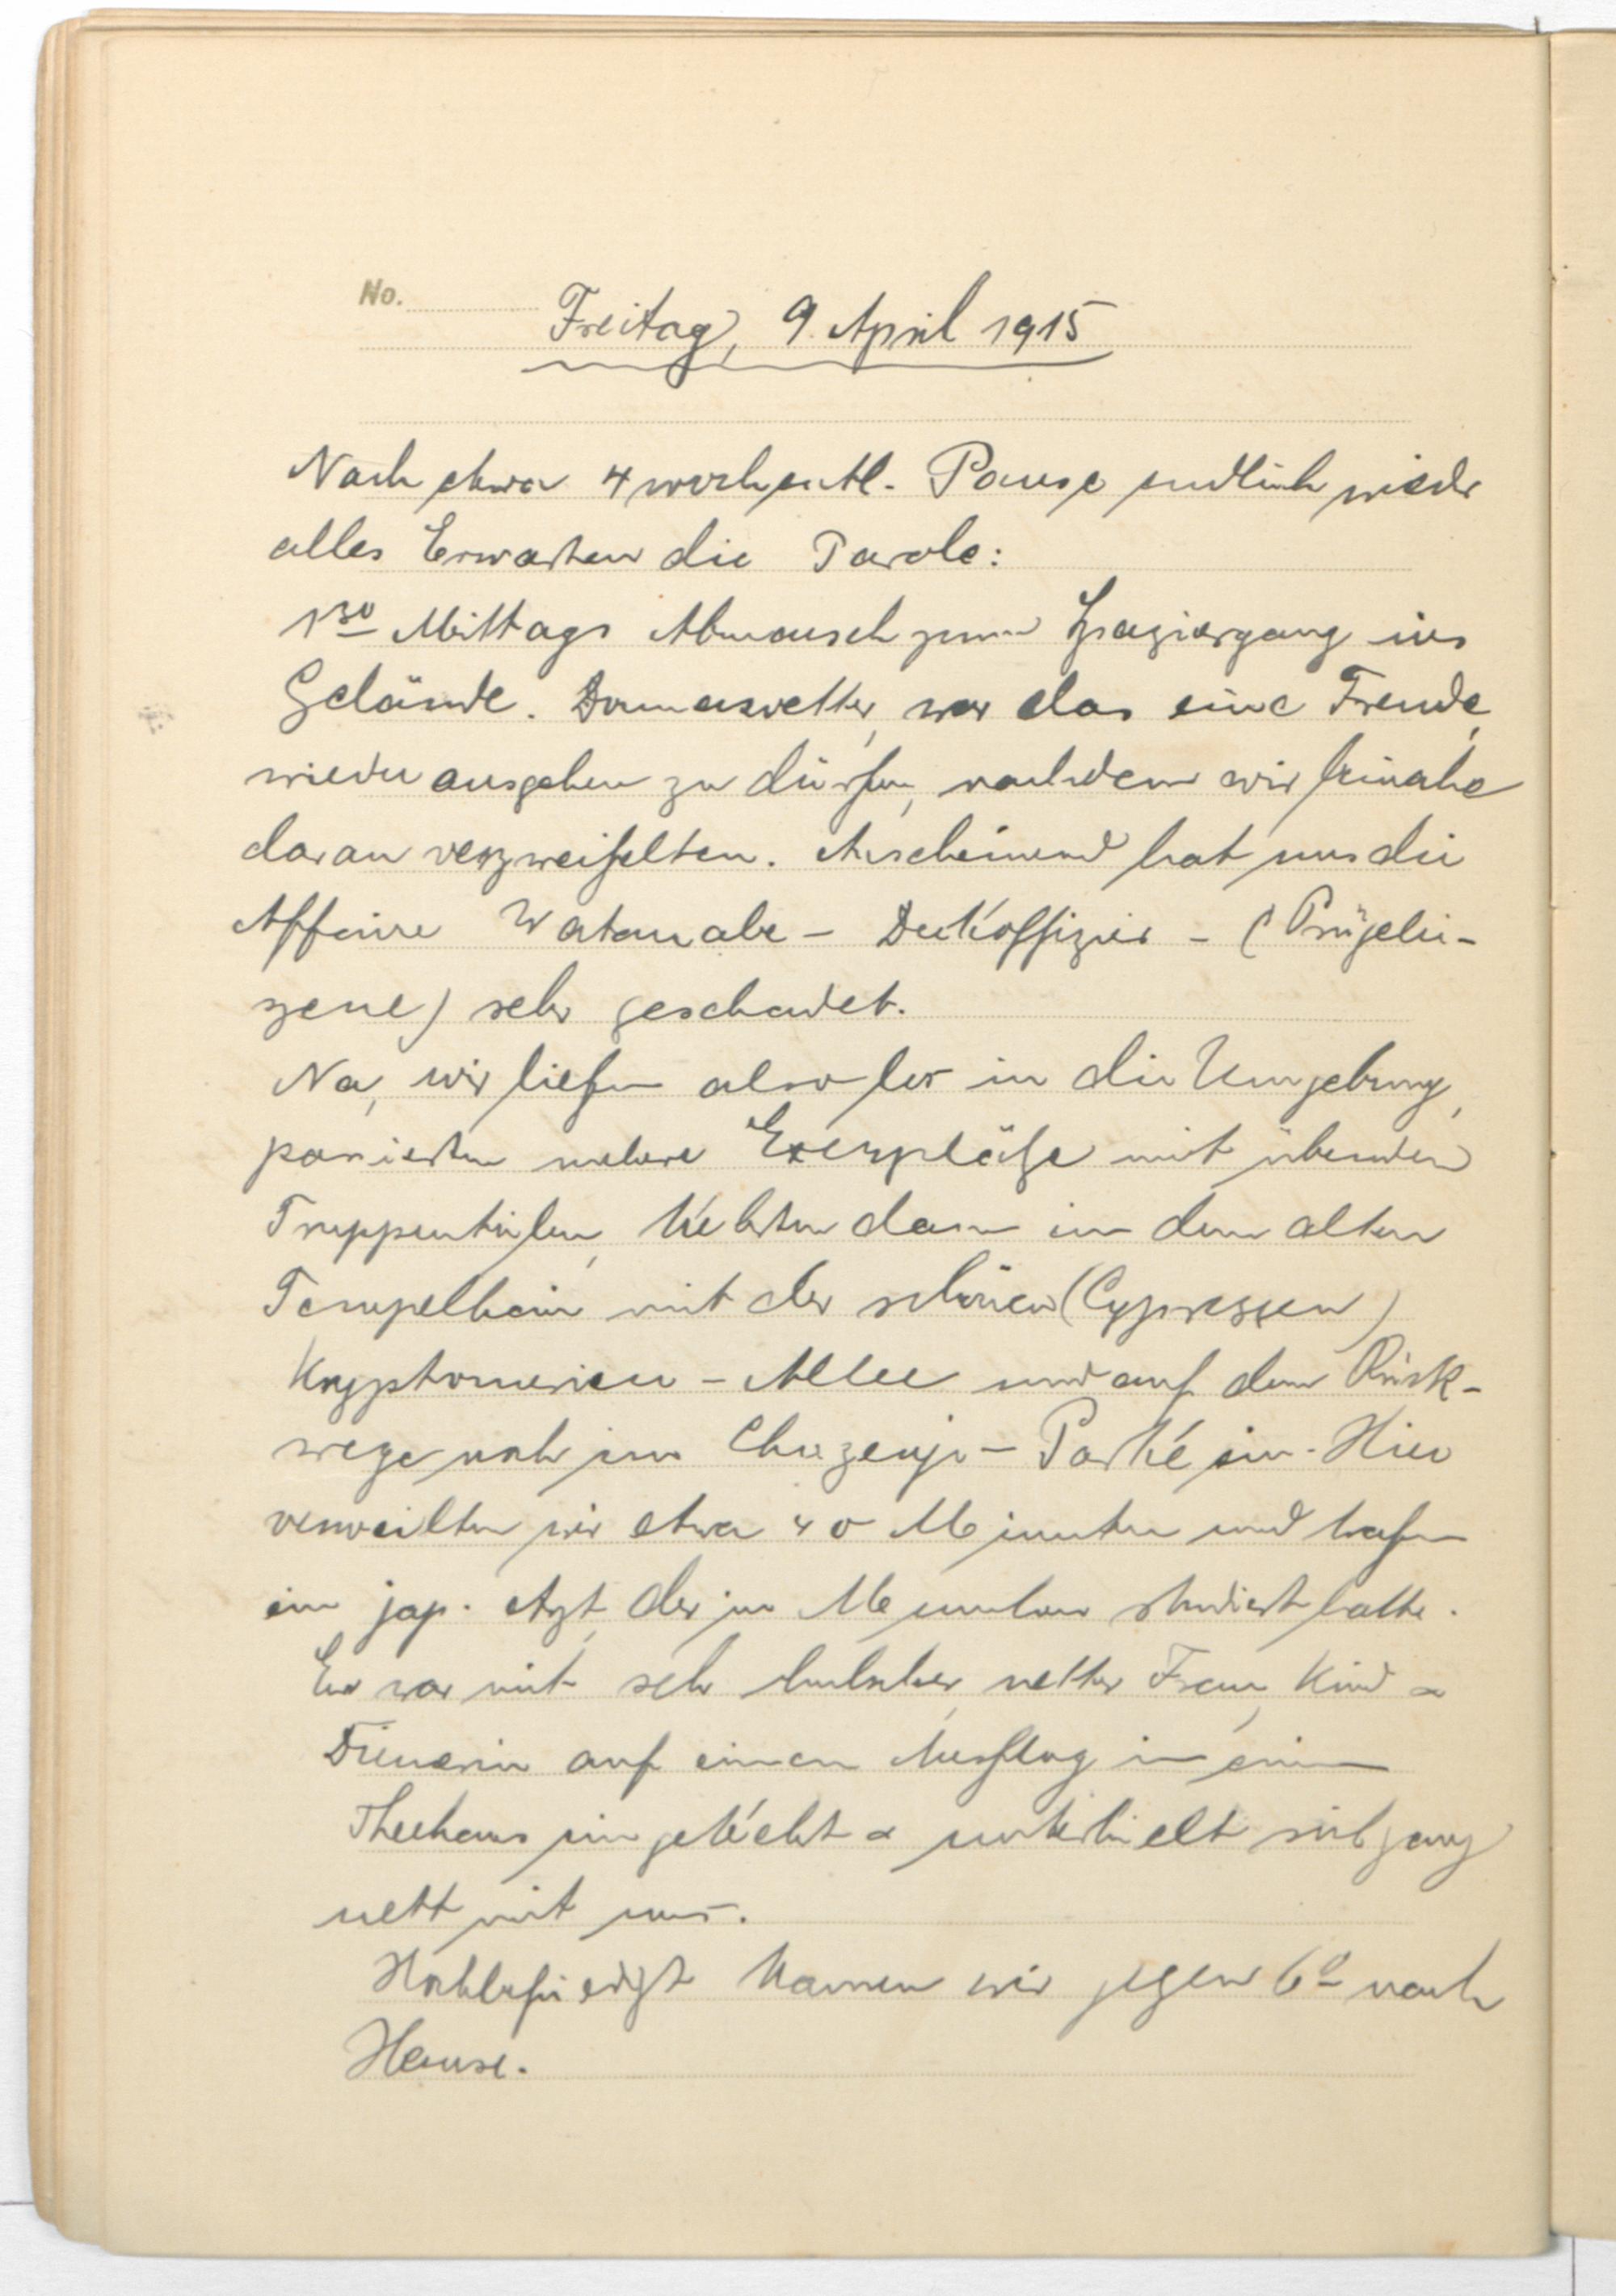 No.
Freitag, 9. April 1915
Nach etwa 4 wöchentl. Pause endlich wieder
alles Erwarten die Parole:
1³⁰ Mittags Abmarsch zum Spaziergang ins
Gelände. Donnerwetter, war das eine Freude,
wieder ausgehen zu dürfen, nachdem wir beinahe
daran verzweifelten. Anscheinend hat uns die
Affaire Watanabe - Deckoffizier - (Prügelei-
szene) sehr geschadet.
Na, wir liefen also los in die Umgebung,
passierten mehrere Exerzplätze mit übenden
Truppenteilen, kehrten dann in dem alten
Tempelhain mit der schönen (Cypressen)
Kryptomerien - Allee und auf dem Rück-
wege noch im Chozenji - Parke ein. Hier
verweilten wir etwa 40 Minuten und trafen
ein jap. Arzt, der in München studiert hatte.
Er war mit sehr hübscher, netter Frau, Kind &
Dienerin auf einem Ausflug in ein
Theehaus eingekehrt & unterhielt sich ganz
nett mit uns.
Hochbefriedigt kamen wir gegen 6⁰ nach
Hause.